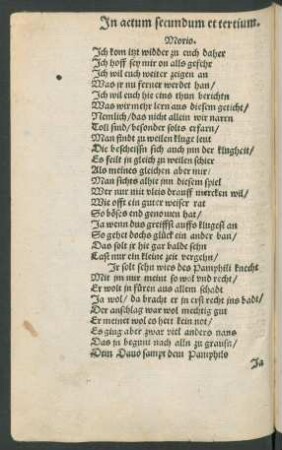 In actum secundum et tertium.
Morio.
Ich kom itzt widder zu euch daher
Ich hoff sey mir on alls gefehr
Ich wil euch weiter zeigen an
Was jr nu ferner werdet han/
Ich wil euch hie eins thun berichtn
Was wir mehr lern aus diesem geticht/
Nemlich/das nicht allein wir naren
Toll sind/besonder solts erfarn/
Man findt zu weilen kluge leut
Die bescheissn sich auch jnn der klugheit/
Es feilt jn gleich zu weilen schier
Als meines gleichen aber mir/
Man sichts alhie jnn diesem spiel
Wer nur mit vleis drauff mercken wil/
Wie offt ein guter weiser rat
So böses end genomen hat/
Ja wenn dus greiffst auffs klugest an
So gehet dochs glück ein ander ban/
Das solt jr hie gar balde sehn
Last nur ein kleine zeit vergehn/
Jr solt sehn wies des Pamphili knecht
Mit jm nur meint so wol vnd recht/
Er wolt jn füren aus allem schadt
Ja wol/ da bracht er jn erst recht ins badt/
Der anschlag war wol mechtig gut
Er meinet wol es hett kein not/
Es ging aber zwar viel anders naus
Das jn begunt nach alln zu grausn/
Dem Dauo sampt dem Pamphilo
Ja